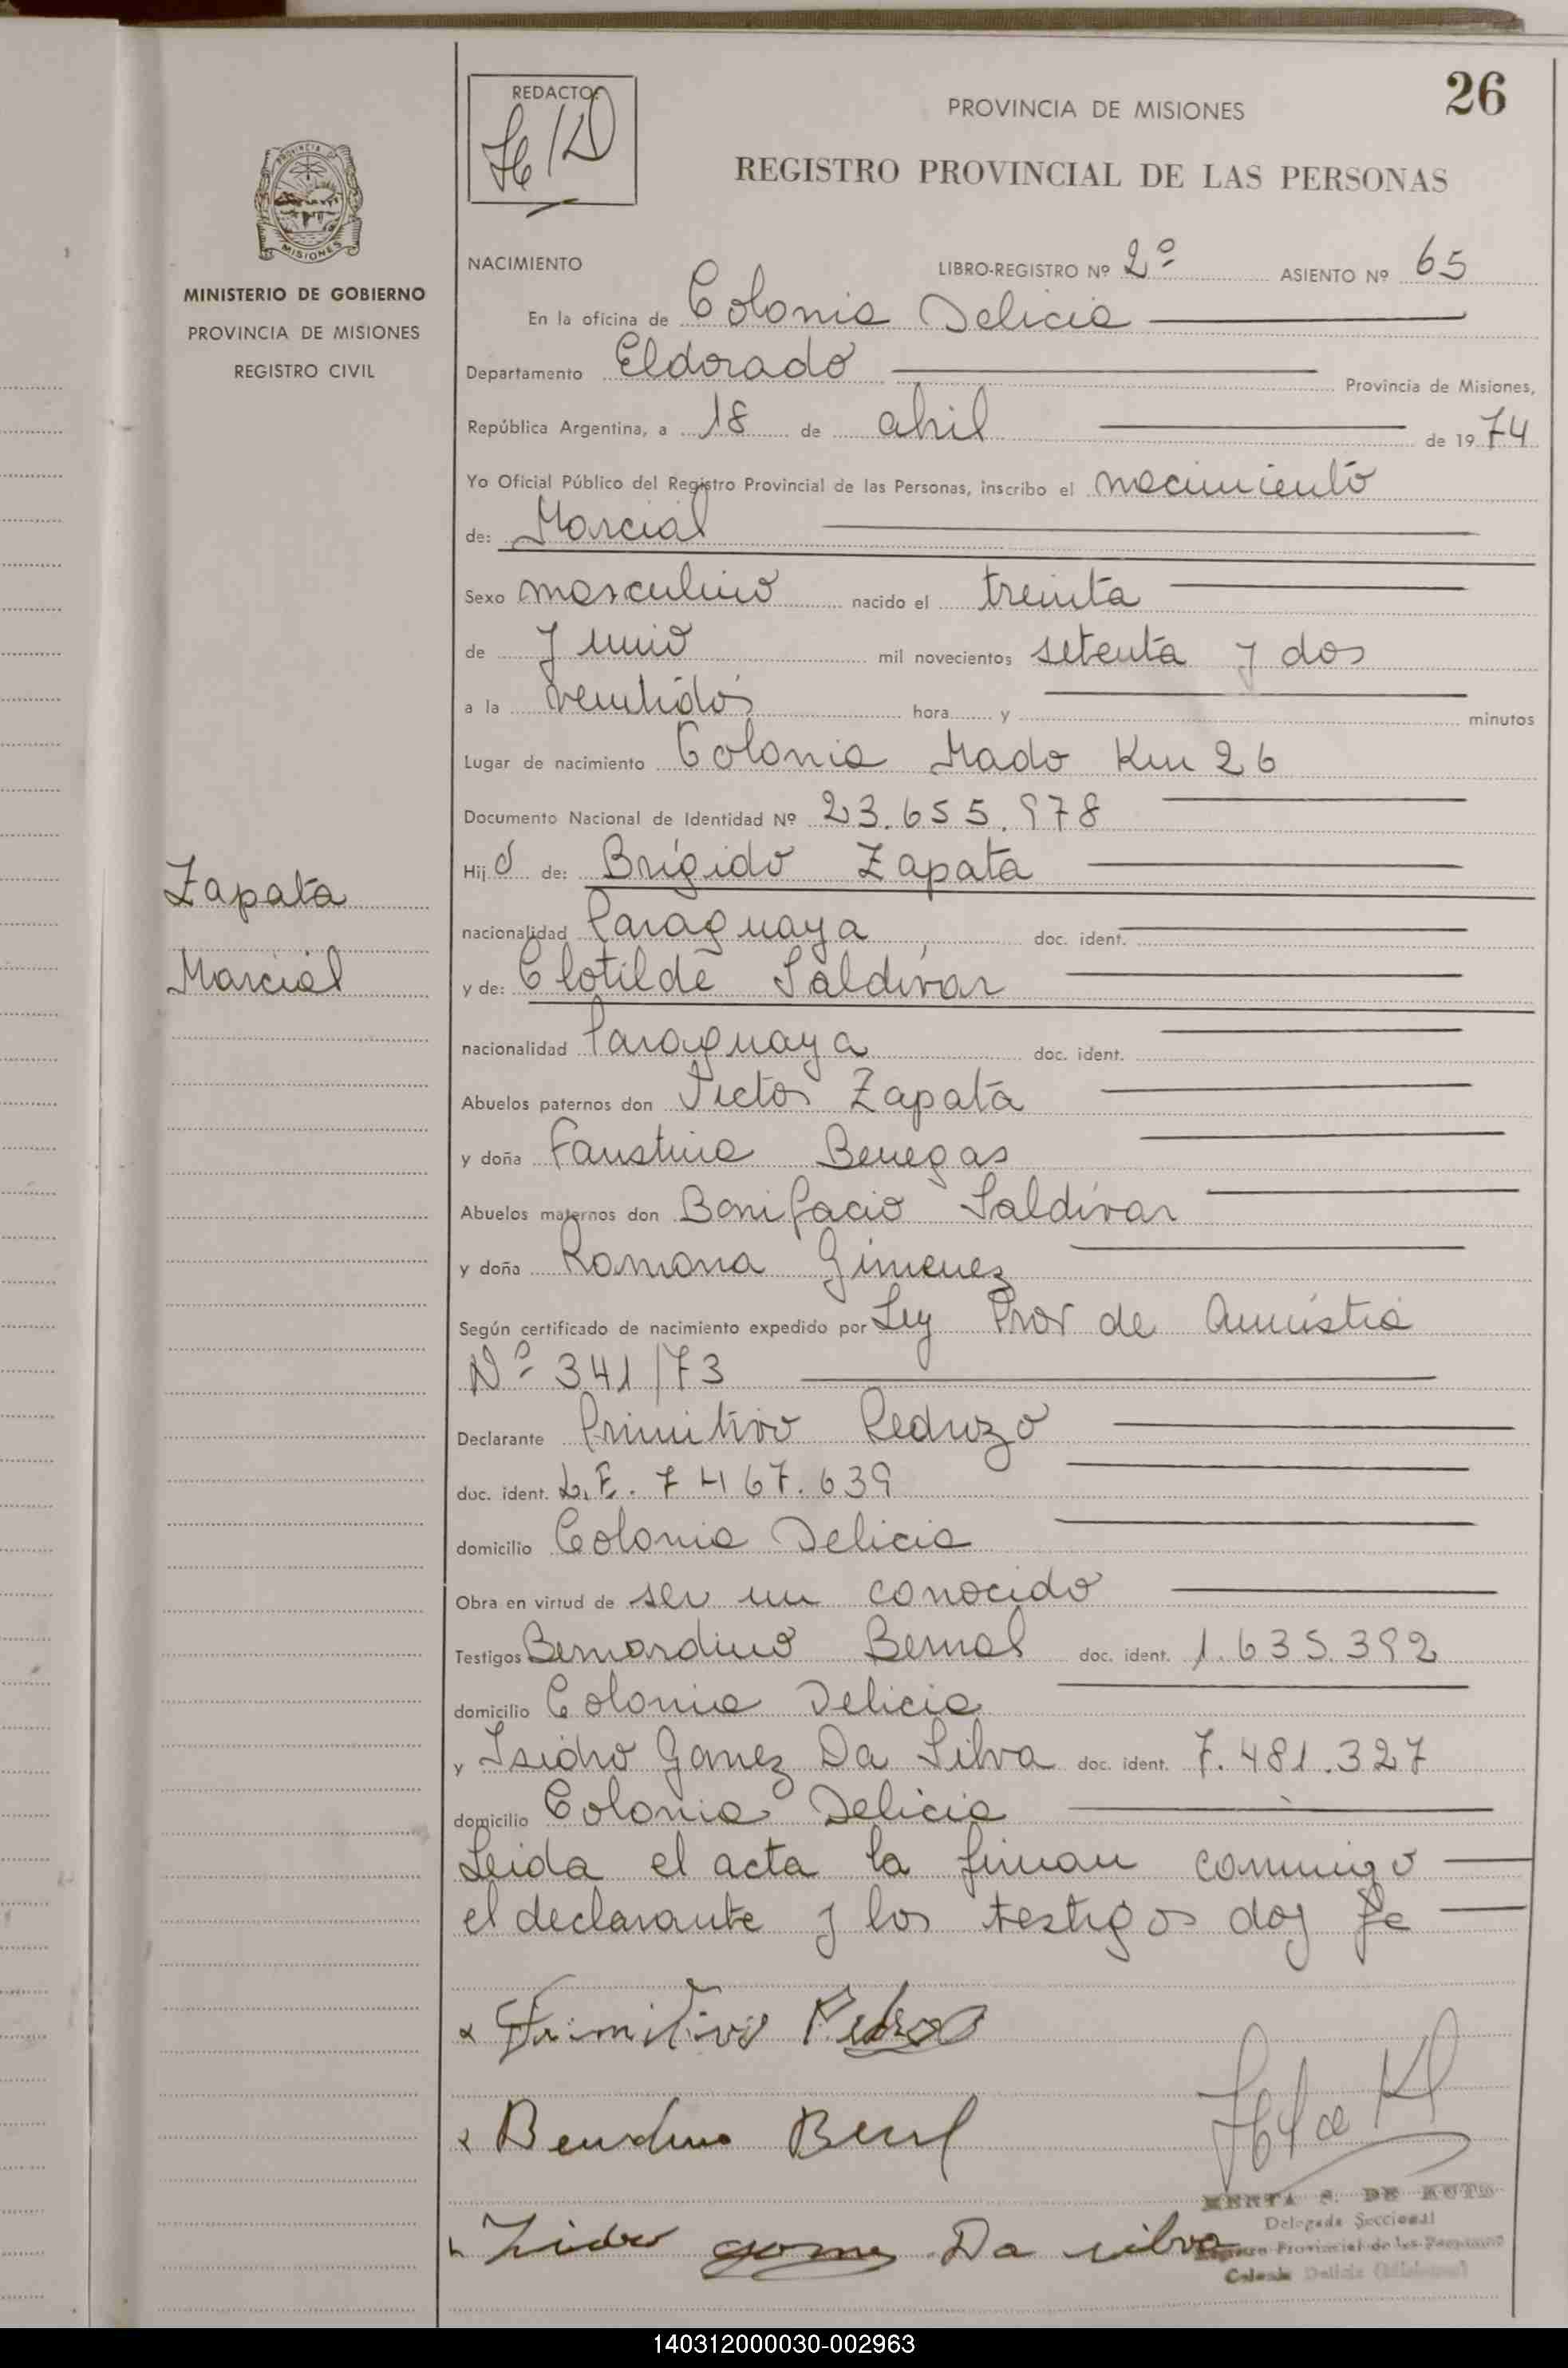 REDACTOR
PROVINCIA DE MISIONES
26
REGISTRO PROVINCIAL DE LAS PERSONAS
PROVINCIA DE
MISIONES
MINISTERIO DE GOBIERNO
PROVINCIA DE MISIONES
REGISTRO CIVIL
NACIMIENTO LIBRO-REGISTRO Nº 2º ASIENTO Nº 65
En la oficina de Colonia Delicia
Departamento Eldorado Provincia de Misiones,
República Argentina, a 18 de abril de 1974
Yo Oficial Público del Registro Provincial de las Personas, inscribo el nacimiento
de: Marcial
Sexo masculino nacido el treinta
de Junio mil novecientos setenta y dos
a la veintidos hora y minutos
Lugar de nacimiento Colonia Mado Km 26
Documento Nacional de Identidad Nº 23.655.978
Hijo de: Brígido Zapata
Zapata
nacionalidad Paraguaya doc. ident.
Marcial
y de: Clotilde Saldívar
nacionalidad Paraguaya doc. ident.
Abuelos paternos don Victor Zapata
y doña Faustina Benegas
Abuelos maternos don Bonifacio Saldívar
y doña Romona Gimenez
Según certificado de nacimiento expedido por Ley Prov de Amnistia
Nº 341/73
Declarante Primitivo Pedrozo
doc. ident. L.E. 7467.639
domicilio Colonia Delicia
Obra en virtud de ser un conocido
Testigos Bernardino Bernal doc. ident. 1.635.392
domicilio Colonia Delicia
y Isidro Gomez Da Silva doc. ident. 7.481.327
domicilio Colonia Delicia
Leida el acta la firman conmigo
el declarante y los testigos doy fe
Primitivo Pedrozo
Bernardino Bernal
Isidro gomez Da silva
DE
Delegada Seccional
Registro Provincial de las Personas
Colonia Delicia (Misiones)
140312000030-002963